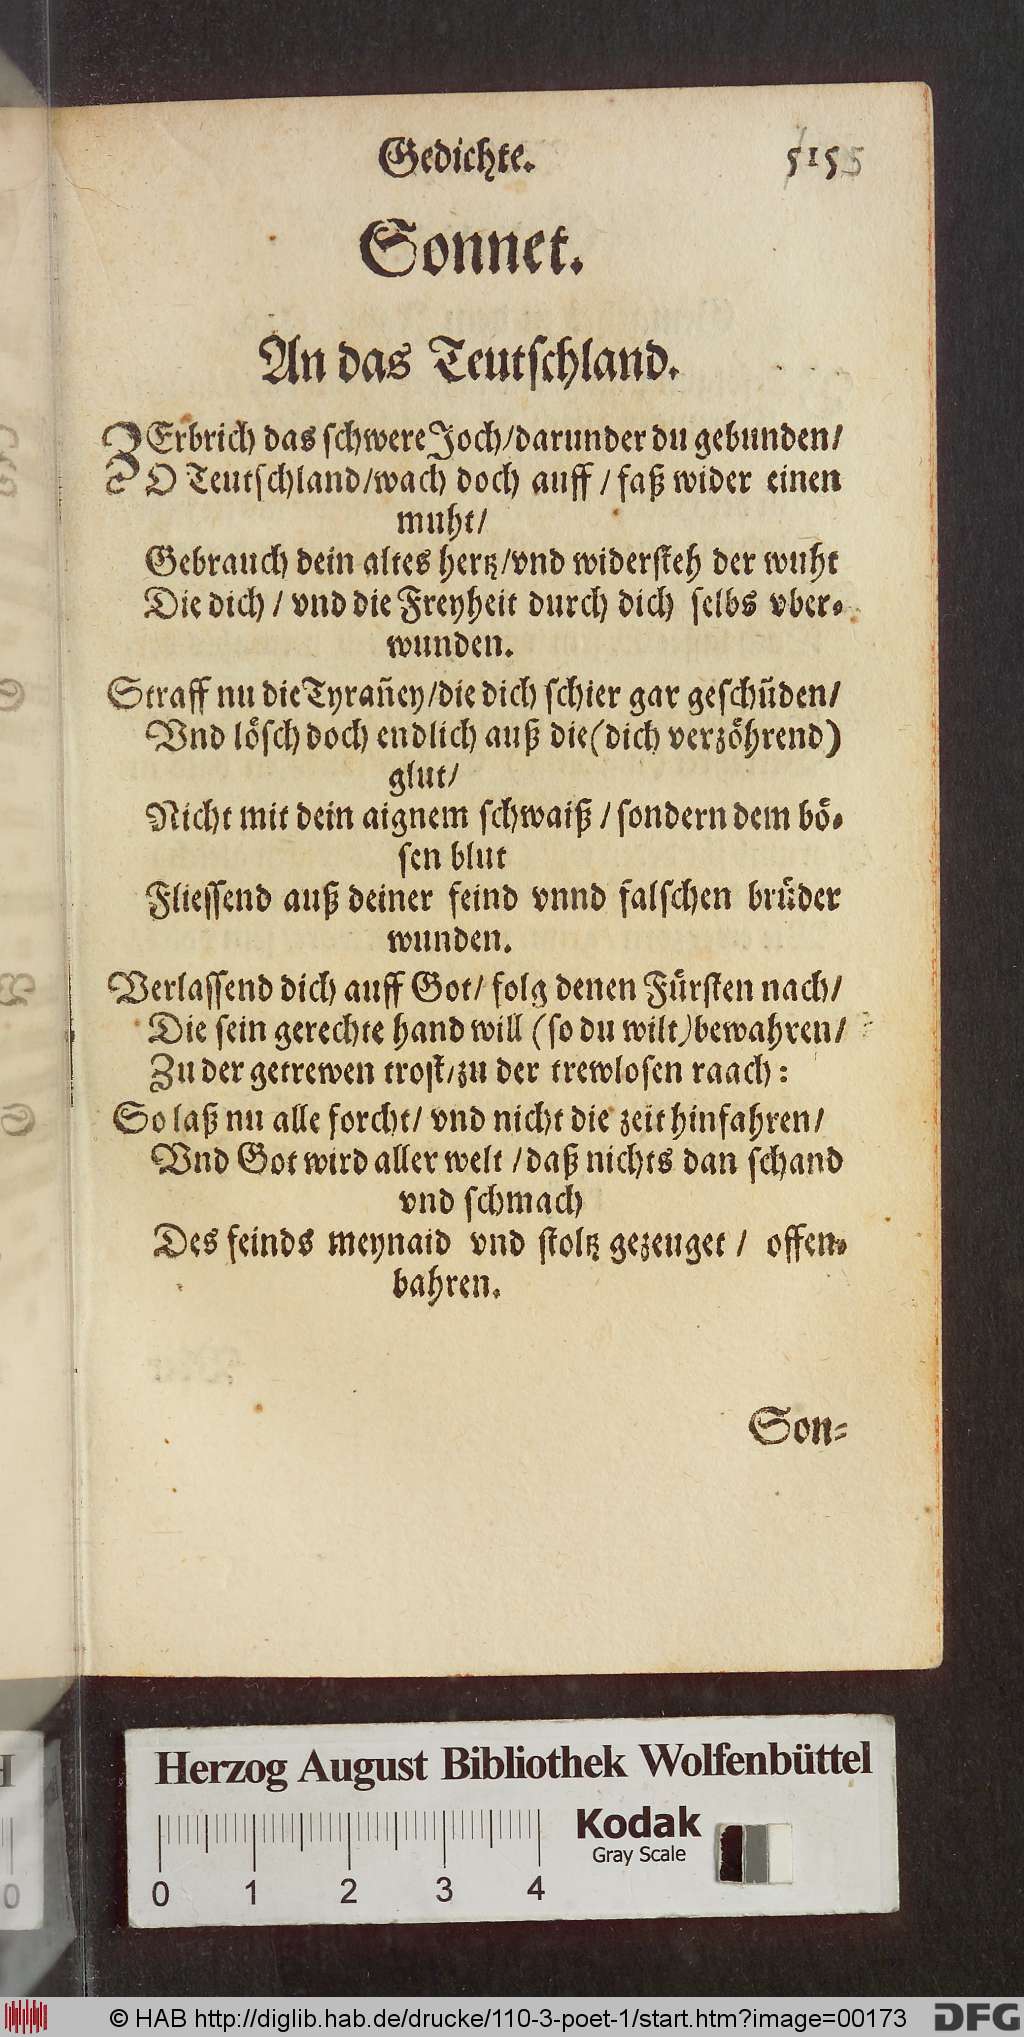 Gedichte. 5155
Sonnet.
An das Teutschland.
ZErbrich das schwere Joch/darunder du gebunden/
O Teutschland/wach doch auff / faß wider einen
muht/
Gebrauch dein altes hertz/vnd widersteh der wuht
Die dich / vnd die Freyheit durch dich selbs vber-
wunden.
Straff nu die Tyrañey/die dich schier gar geschũden/
Vnd lösch doch endlich auß die (dich verzöhrend)
glut/
Nicht mit dein aignem schwaiß / sondern dem bö-
sen blut
Fliessend auß deiner feind vnnd falschen brüder
wunden.
Verlassend dich auff Got/ folg denen Fürsten nach/
Die sein gerechte hand will (so du wilt) bewahren/
Zu der getrewen trost/zu der trewlosen raach:
So laß nu alle forcht/ vnd nicht die zeit hinfahren/
Vnd Got wird aller welt / daß nichts dan schand
vnd schmach
Des feinds meynaid vnd stoltz gezeuget / offen-
bahren.
Son-
Herzog August Bibliothek Wolfenbüttel
Kodak
Gray Scale
0 1 2 3 4
© HAB http://diglib.hab.de/drucke/110-3-poet-1/start.htm?image=00173
DFG